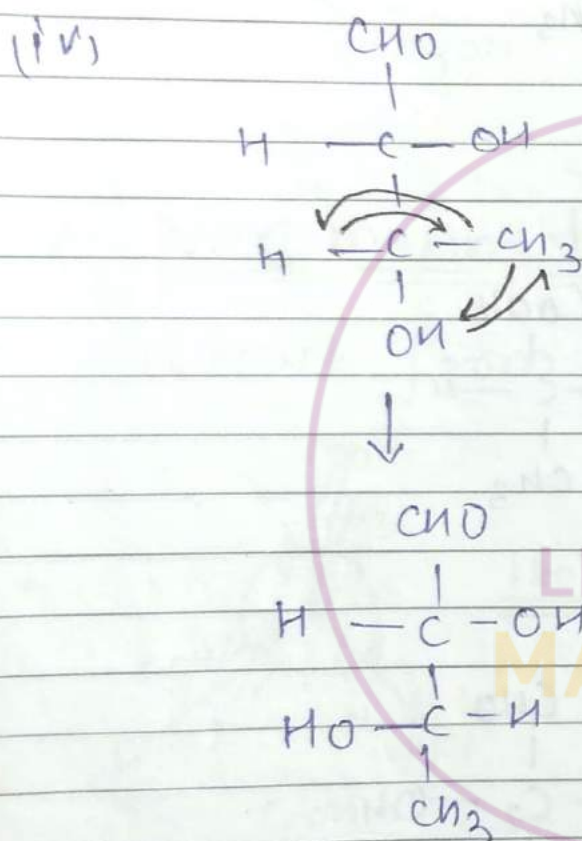 (iv)
CHO
H — C — OH
H — C — CH3
OH
CHO
H — C — OH
HO — C — H
CH3